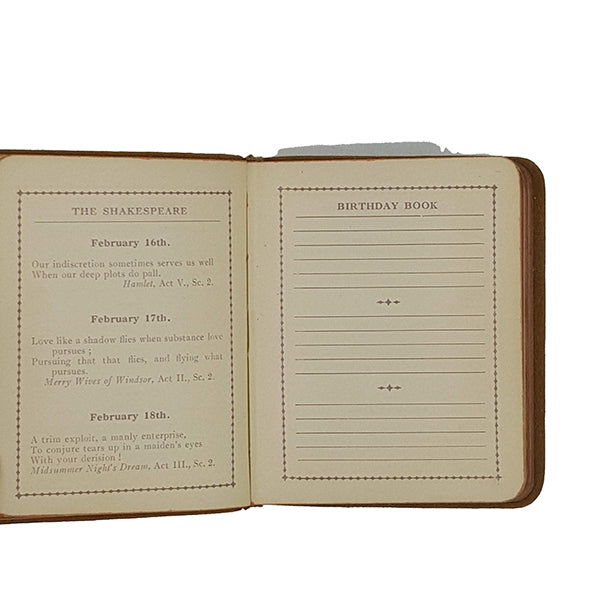 THE SHAKESPEARE
February 16th.
Our indiscretion sometimes serves us well
When our deep plots do pall.
Hamlet, Act V., Sc. 2.
February 17th.
Love like a shadow flies when substance love
pursues ;
Pursuing that that flies, and flying what
pursues.
Merry Wives of Windsor, Act II., Sc. 2.
February 18th.
A trim exploit, a manly enterprise,
To conjure tears up in a maiden's eyes
With your derision !
Midsummer Night's Dream, Act III., Sc. 2.
BIRTHDAY BOOK